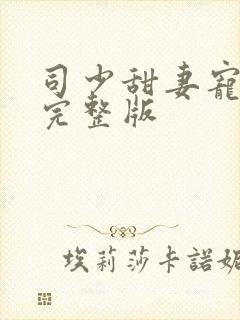 司少甜妻寵
完整版
埃莉莎卡諾妮